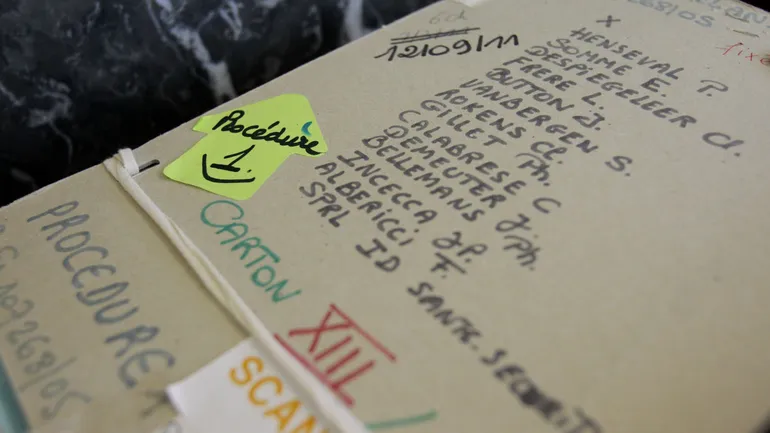 12/09/11
X
HENSEVAL P.
SOMME E.
DESPIEGELEER Cl.
FRERE L.
BUTTON J.
VANBERGEN S.
ROKENS Cl.
GILLET Th.
CALABRESE C
DEMEUTER J.Ph.
BELLEMANS
INCECCA JP.
ALBERICCI F.
SPRL ID SANTE.SECURIT
Procédure
1.
CARTON
XIII
PROCEDURE
SCAN